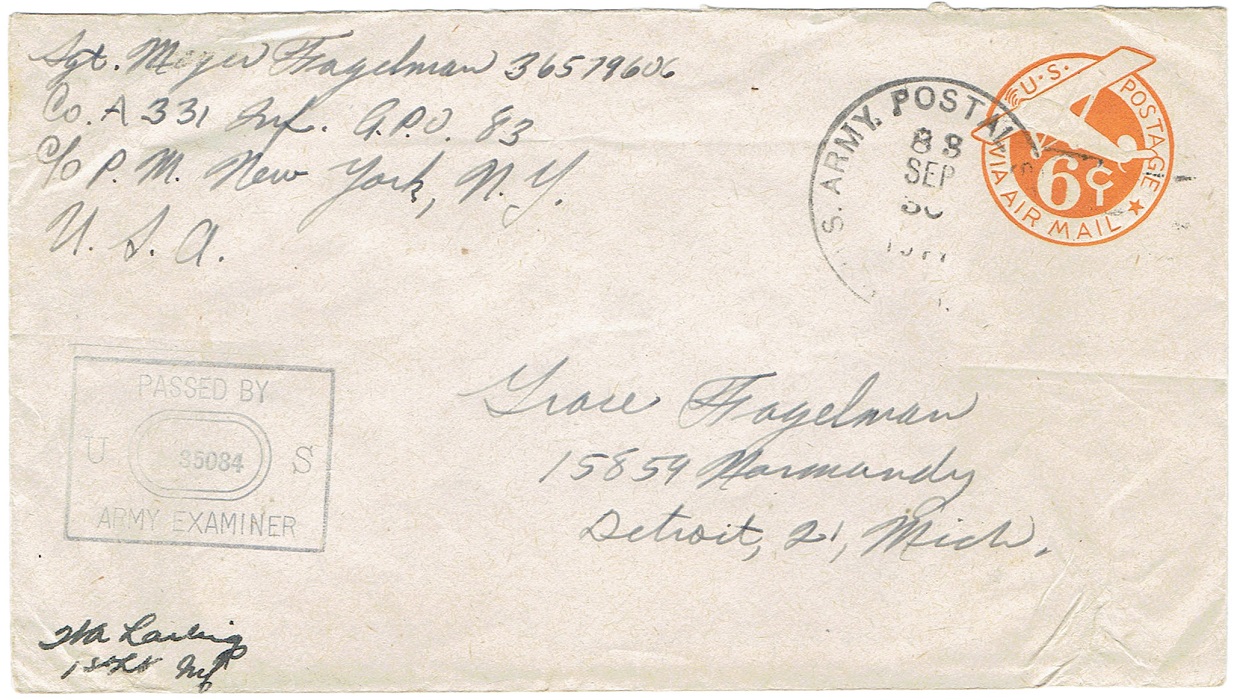 Sgt. Meyer Fagelman 36579606
Co. A 331 Inf. A.P.O. 83
c/o P. M. New York, N. Y.
U. S. A.
S. ARMY. POSTAL
SEP
U.S. POSTAGE
6¢
VIA AIR MAIL
PASSED BY
U 35084 S
ARMY EXAMINER
Grace Fagelman
15859 Normandy
Detroit, 21, Mich.
1st Lt Inf